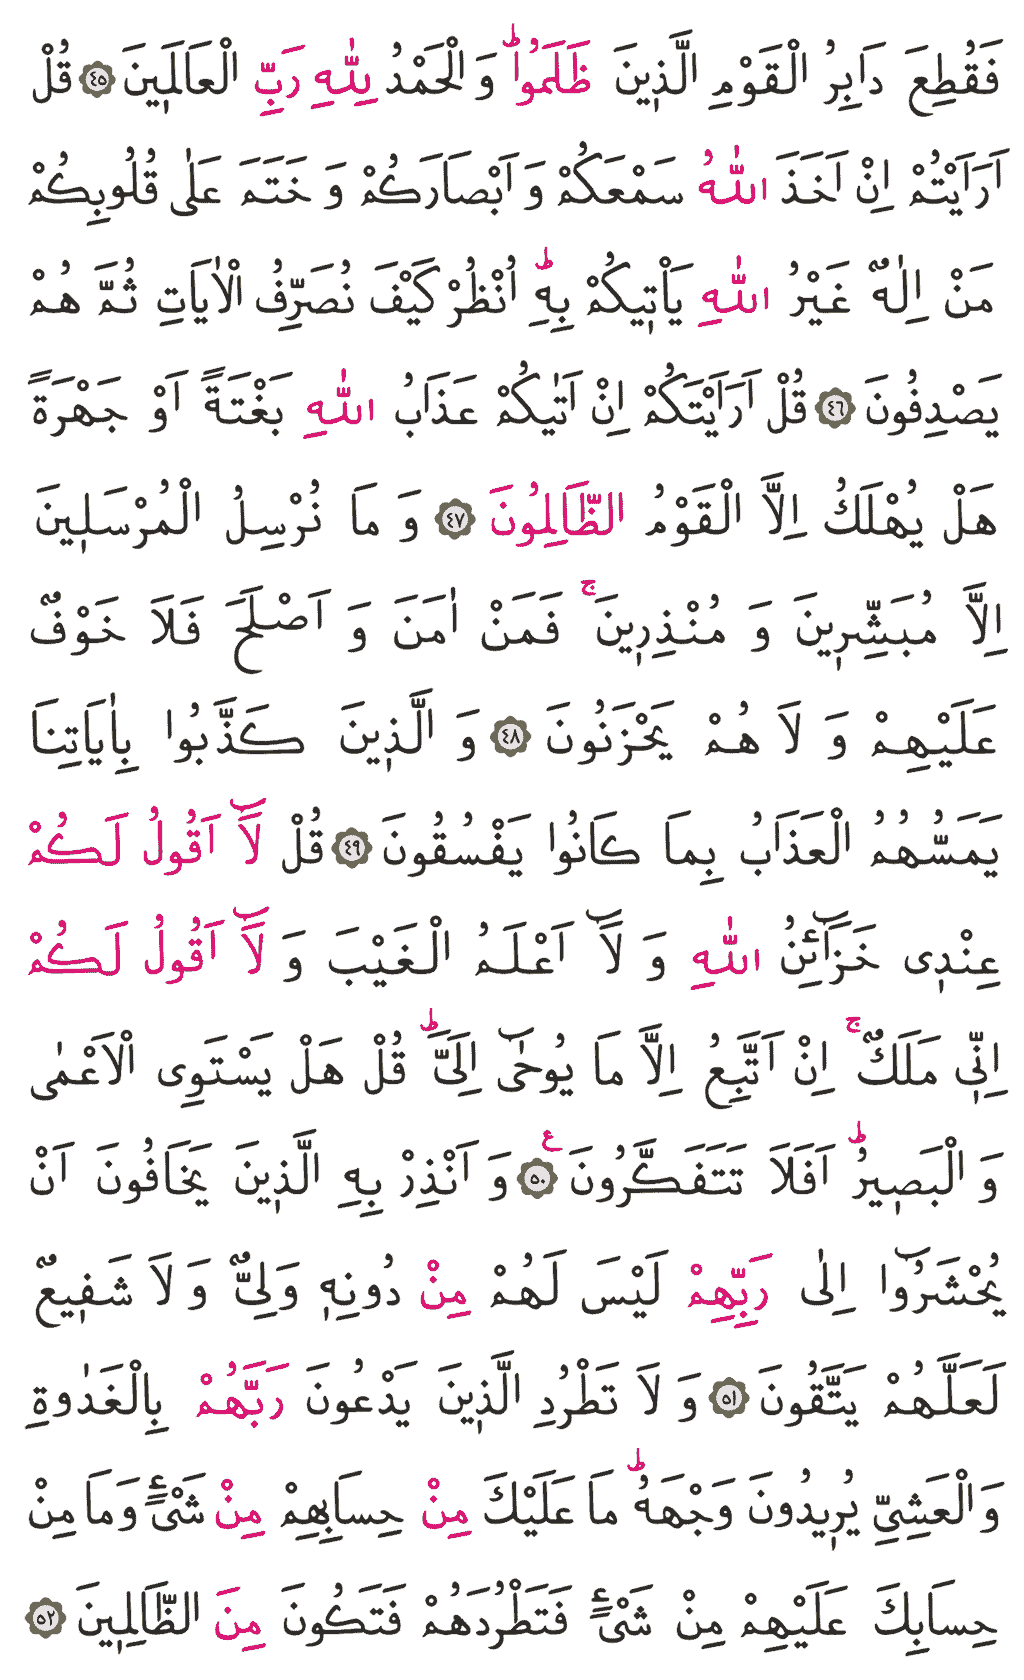 فَقُطِعَ دَابِرُ الْقَوْمِ الَّذٖينَ ظَلَمُواؕ وَ الْحَمْدُ لِلّٰهِ رَبِّ الْعَالَمٖينَ ﴿٤٥﴾ قُلْ
اَرَاَيْتُمْ اِنْ اَخَذَ اللّٰهُ سَمْعَكُمْ وَ اَبْصَارَكُمْ وَ خَتَمَ عَلٰى قُلُوبِكُمْ
مَنْ اِلٰهٌ غَيْرُ اللّٰهِ يَاْتٖيكُمْ بِهٖؕ اُنْظُرْ كَيْفَ نُصَرِّفُ الْاٰيَاتِ ثُمَّ هُمْ
يَصْدِفُونَ ﴿٤٦﴾ قُلْ اَرَاَيْتَكُمْ اِنْ اَتٰيكُمْ عَذَابُ اللّٰهِ بَغْتَةً اَوْ جَهْرَةً
هَلْ يُهْلَكُ اِلَّا الْقَوْمُ الظَّالِمُونَ ﴿٤٧﴾ وَ مَا نُرْسِلُ الْمُرْسَلٖينَ
اِلَّا مُبَشِّرٖينَ وَ مُنْذِرٖينَۚ فَمَنْ اٰمَنَ وَ اَصْلَحَ فَلَا خَوْفٌ
عَلَيْهِمْ وَ لَا هُمْ يَحْزَنُونَ ﴿٤٨﴾ وَ الَّذٖينَ كَذَّبُوا بِاٰيَاتِنَا
يَمَسُّهُمُ الْعَذَابُ بِمَا كَانُوا يَفْسُقُونَ ﴿٤٩﴾ قُلْ لَٓا اَقُولُ لَكُمْ
عِنْدٖى خَزَٓائِنُ اللّٰهِ وَ لَٓا اَعْلَمُ الْغَيْبَ وَ لَٓا اَقُولُ لَكُمْ
اِنّٖى مَلَكٌۚ اِنْ اَتَّبِعُ اِلَّا مَا يُوحٰٓى اِلَىَّؕ قُلْ هَلْ يَسْتَوِى الْاَعْمٰى
وَ الْبَصٖيرُؕ اَفَلَا تَتَفَكَّرُونَ ﴿٥٠﴾ ع وَ اَنْذِرْ بِهِ الَّذٖينَ يَخَافُونَ اَنْ
يُحْشَرُٓوا اِلٰى رَبِّهِمْ لَيْسَ لَهُمْ مِنْ دُونِهٖ وَلِىٌّ وَ لَا شَفٖيعٌ
لَعَلَّهُمْ يَتَّقُونَ ﴿٥١﴾ وَ لَا تَطْرُدِ الَّذٖينَ يَدْعُونَ رَبَّهُمْ بِالْغَدٰوةِ
وَ الْعَشِىِّ يُرٖيدُونَ وَجْهَهُؕ مَا عَلَيْكَ مِنْ حِسَابِهِمْ مِنْ شَىْءٍ وَ مَا مِنْ
حِسَابِكَ عَلَيْهِمْ مِنْ شَىْءٍ فَتَطْرُدَهُمْ فَتَكُونَ مِنَ الظَّالِمٖينَ ﴿٥٢﴾